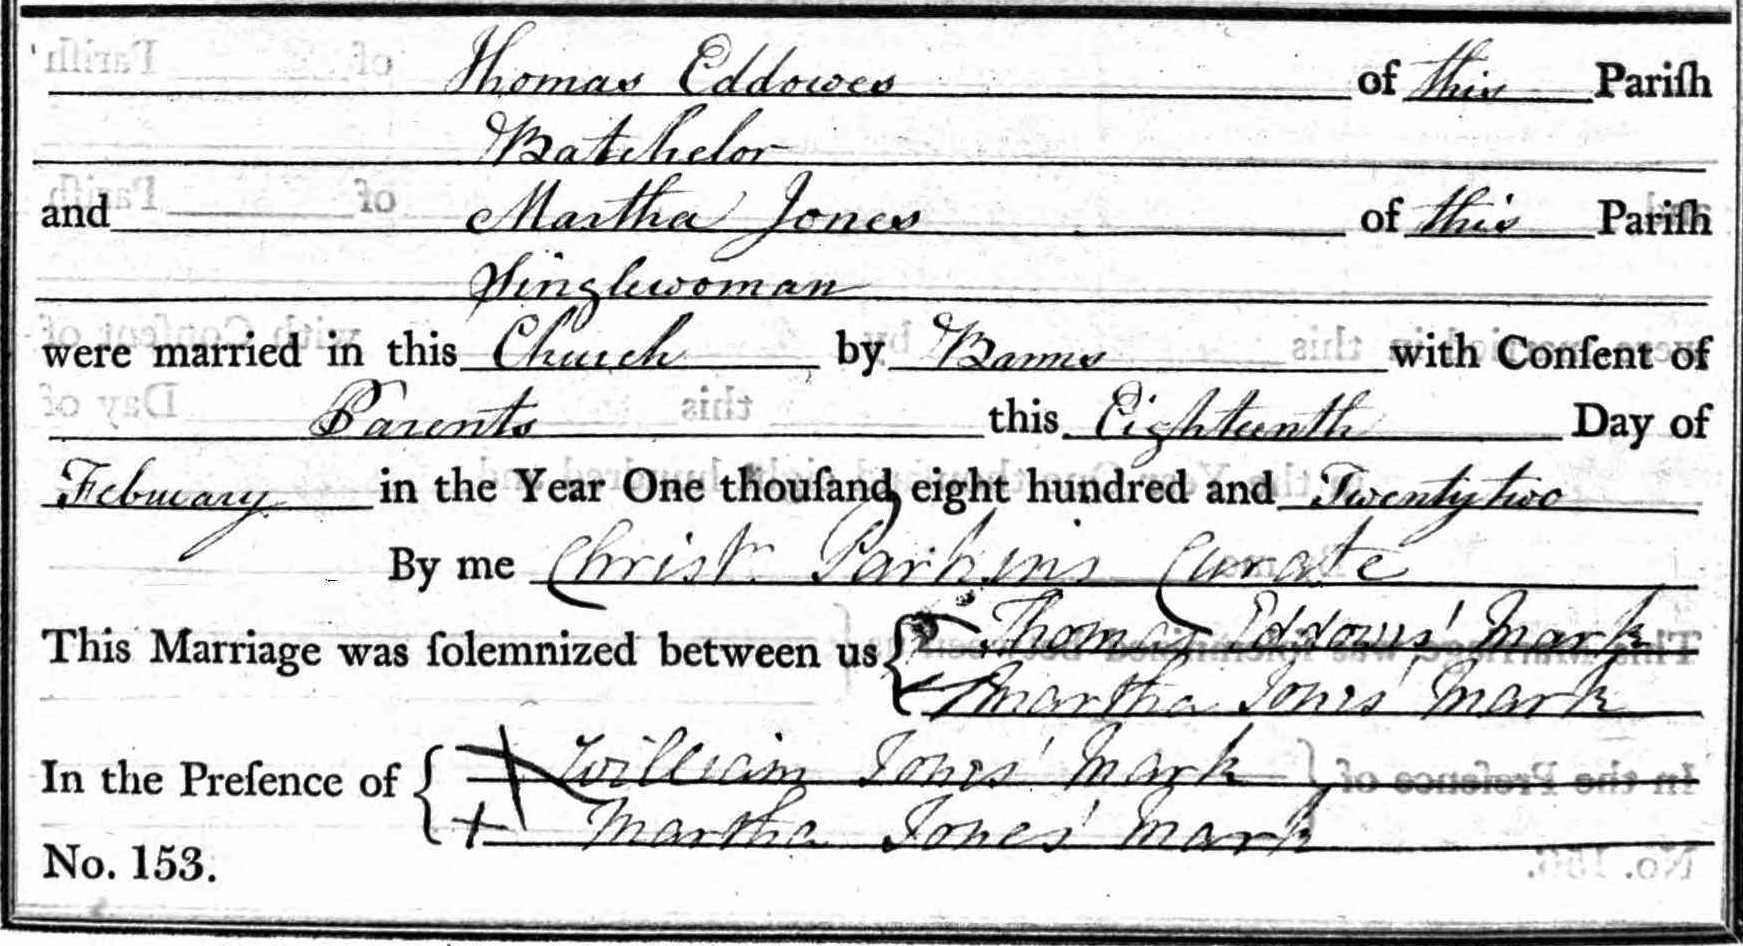 Thomas Eddowes of this Pariſh
Batchelor
and Martha Jones of this Pariſh
Singlewoman
were married in this Church by Banns with Conſent of
Parents this Eighteenth Day of
February in the Year One thouſand eight hundred and Twenty two
By me Christr. Parkins Curate
This Marriage was ſolemnized between us { Thomas Eddowes' mark
Martha Jones' mark
In the Preſence of { + William Jones' Mark
+ Martha Jones' mark
No. 153.